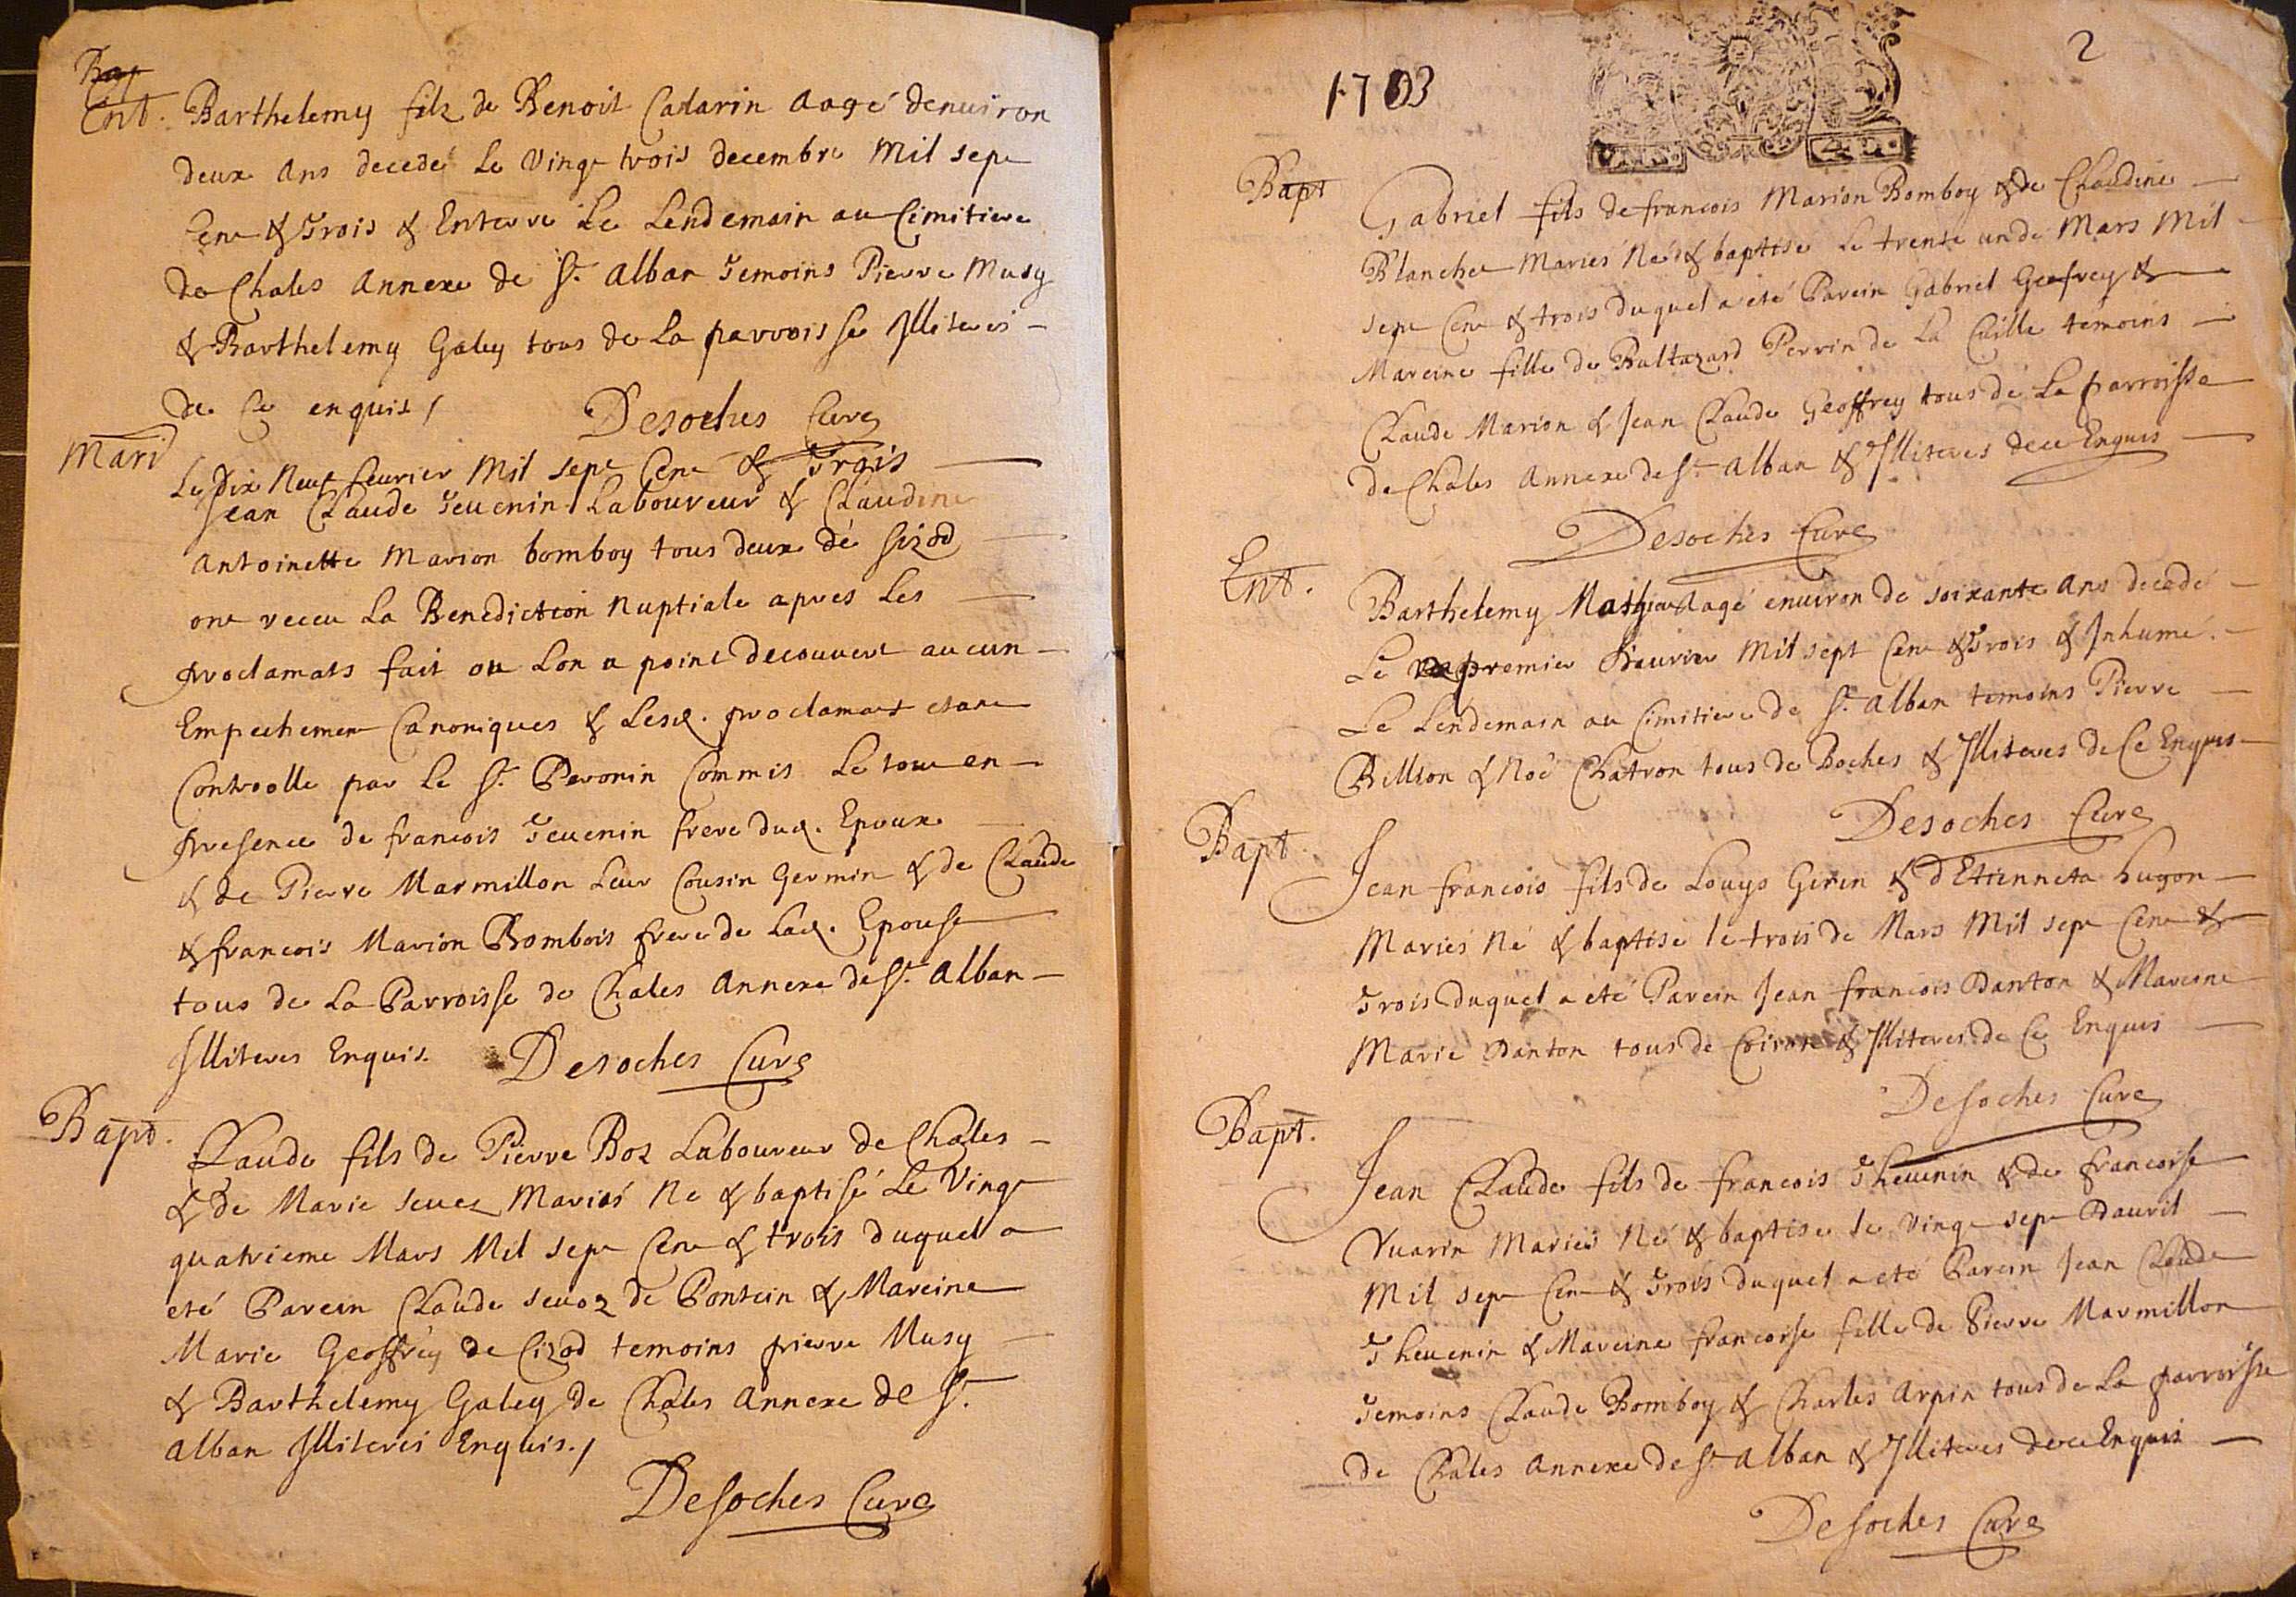 Bap
Ent. Barthelemy filz de Benoit Catarin aagé denuiron
deux ans decedé Le Vingt trois decembre Mil sept
Cent & Trois & Enterre Le Lendemain au Cimitiere
de Chales Annexe de St. alban Temoins Pierre Musy
& Barthelemy Galey tous de La parroisse Illiteres
de Ce enquis /
Desoches Cure
Mari
Le Dix Neuf feurier Mil sept Cent & Trois
Jean Claude Teuenin Laboureur & Claudine
Antoinette Marion bomboy tous deux de Sizod
ont receu La Benediction Nuptiale apres Les
proclamats fait ou Lon a point decouuert aucun
Empechement Canoniques & Lesd. proclamats etant
Controolle par Le Sr. Peronin Commis Le tout en
presence de francois Teuenin frere dud. Epoux
& de Pierre Marmillon Leur Cousin Germin & de Claude
& francois Marion Bombois frere de Lad. Epouse
tous de La Parroisse de Chales Annexe de St. Alban
Illiteres Enquis. Desoches Cure
Bapt.
Claude fils de Pierre Boz Laboureur de Chales
& de Marie Seuez Mariés Ne & baptisé Le Vingt
quatrieme Mars Mil sept Cent & trois duquel a
eté Parein Claude Seuoz de Pontein & Mareine
Marie Geoffrey de Cizod temoins pierre Musy
& Barthelemy Galey de Chales Annexe de St.
Alban Illiteres Enquis. /
Desoches Cure
2
1703
Bapt
Gabriel fils de francois Marion Bomboy & de Claudine
Blanchet Mariés Né & baptisé Le trente un de Mars Mil
sept Cent & trois duquel a eté Parein Gabriel Geofrey &
Mareine fille de Baltazard Perrin de La Cuille temoins
Claude Marion & Jean Claude Geoffrey tous de La parroisse
de Chales Annexe de St. Alban & Illiteres de ce Enquis
Desoches Cure
Ent.
Barthelemy aagé enuiron de soixante Ans decedé
Le premier feurier Mil sept Cent & Trois & Inhumé.
Le Lendemain au Cimitiere de St. Alban temoins Pierre
Billion & Noé Chatron tous de Boches & Illiteres de Ce Enquis
Desoches Cure
Bapt.
Jean francois fils de Louys Girin & d Etienneta hugon
Mariés Né & baptisé le trois de Mars Mil sept Cent &
Trois duquel a eté Parein Jean francois Danton & Mareine
Marie Danton tous de & Illiteres de Ce Enquis
Desoches Cure
Bapt.
Jean Claude fils de francois Theuenin & de francoise
Vuarin Mariés Né & baptisé Le Vingt sept Dauril
Mil sept Cent & Trois duquel a eté Parein Jean Claude
Theuenin & Mareine francoise fille de Pierre Marmillon
Temoins Claude Bomboy & Charles Arpin tous de La parroisse
de Chales Annexe de St. Alban & Illiteres de ce Enquis
Desoches Cure